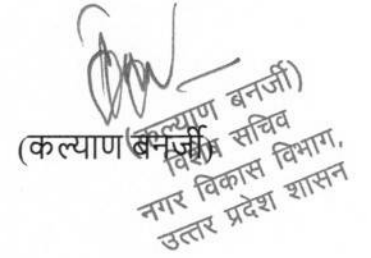 (कल्याण बनर्जी)
(कल्याण बनर्जी)
विशेष सचिव
नगर विकास विभाग,
उत्तर प्रदेश शासन